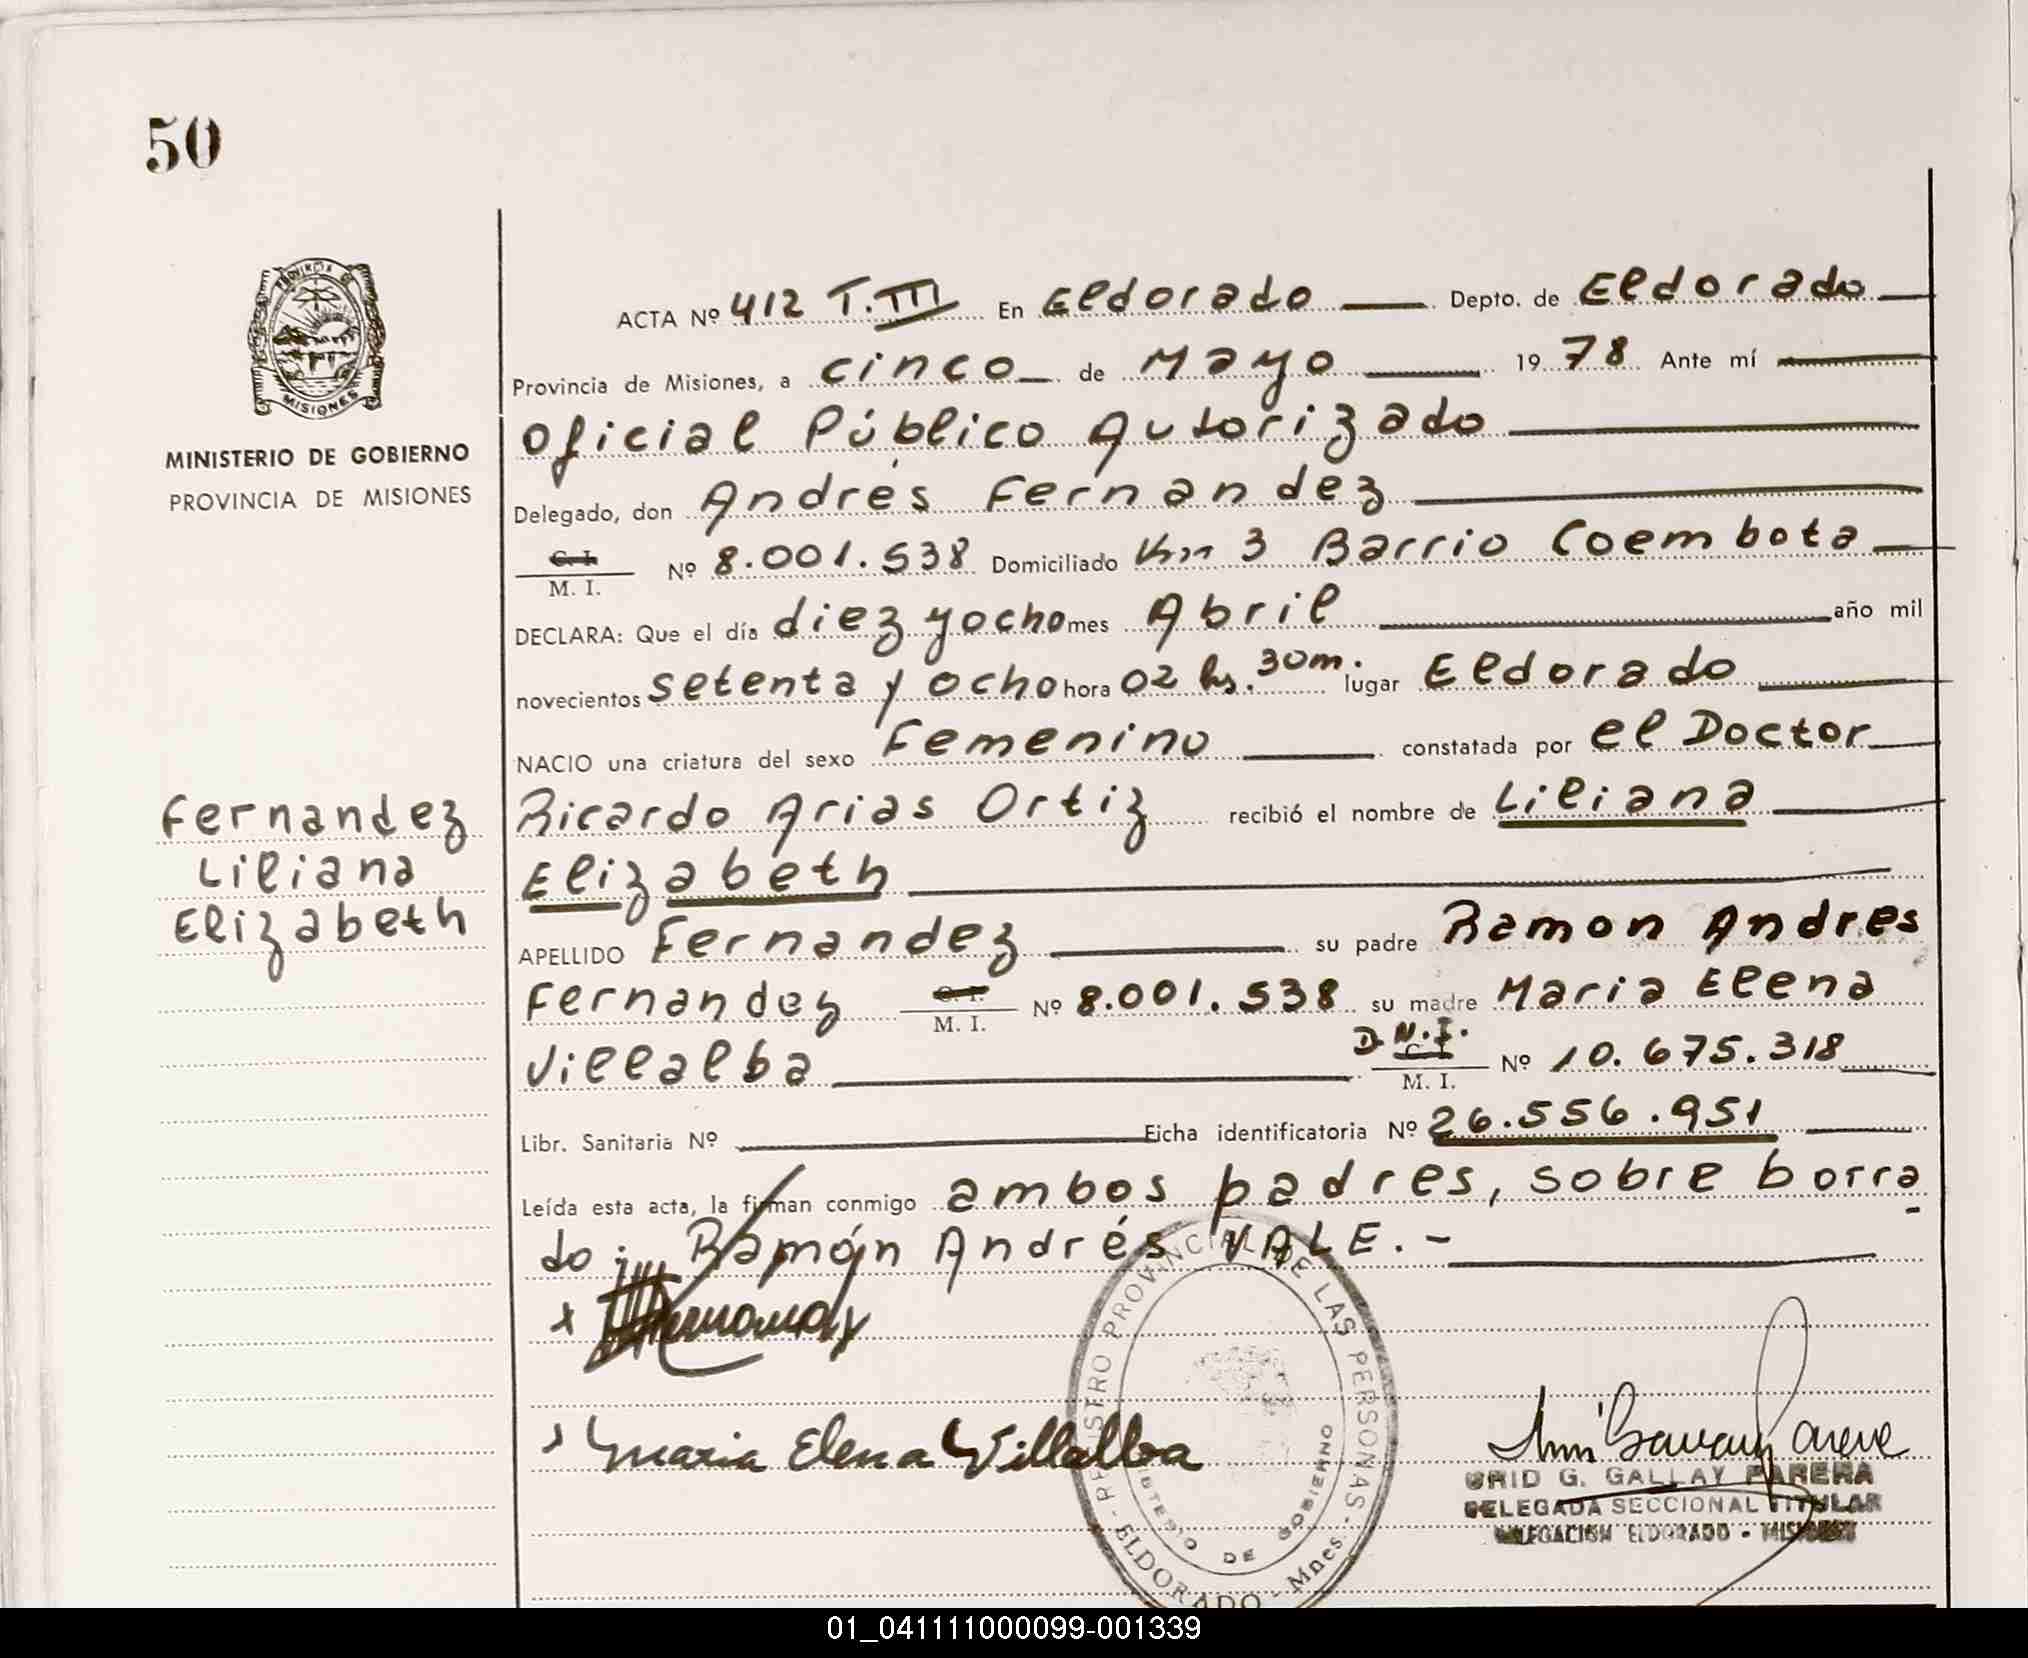 50
PROVINCIA DE
MISIONES
MINISTERIO DE GOBIERNO
PROVINCIA DE MISIONES
ACTA Nº 412 T.III En Eldorado Depto. de Eldorado
Provincia de Misiones, a cinco de Mayo 1978 Ante mí
Oficial Público Autorizado
Delegado, don Andrés Fernandez
C. I.
M. I. Nº 8.001.538 Domiciliado Km 3 Barrio Coembota
DECLARA: Que el día diez y ocho mes Abril año mil
novecientos setenta y ocho hora 02 hs. 30m. lugar Eldorado
NACIO una criatura del sexo Femenino constatada por el Doctor
Ricardo Arias Ortiz recibió el nombre de Liliana
Elizabeth
Fernandez
Liliana
Elizabeth
APELLIDO Fernandez su padre Ramon Andres
Fernandez C. I. M. I. Nº 8.001.538 su madre Maria Elena
Villalba D.N.I. C. I. M. I. Nº 10.675.318
Libr. Sanitaria Nº Ficha identificatoria Nº 26.556.951
Leída esta acta, la firman conmigo ambos padres, sobre borra
do: Ramón Andrés VALE.-
x
x Maria Elena Villalba
REGISTRO PROVINCIAL DE LAS PERSONAS - ELDORADO - Mnes. -
MINISTERIO DE GOBIERNO
G. GALLAY PARERA
DELEGADA SECCIONAL TITULAR
DELEGACION ELDORADO - MISIONES
01_041111000099-001339